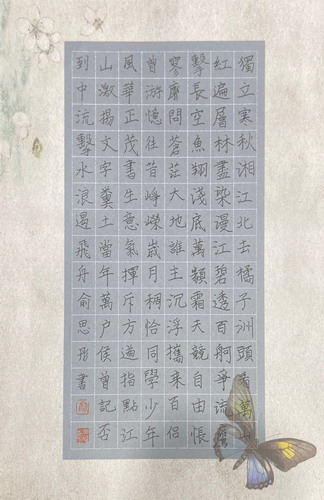 獨立寒秋湘江北去橘子洲頭看萬山
紅遍層林盡染漫江碧透百舸爭流鷹
擊長空魚翔淺底萬類霜天競自由悵
寥廓問蒼茫大地誰主沉浮攜來百侶
曾游憶往昔崢嶸歲月稠恰同學少年
風華正茂書生意氣揮斥方遒指點江
山激揚文字糞土當年萬戶侯曾記否
到中流擊水浪遏飛舟俞思彤書